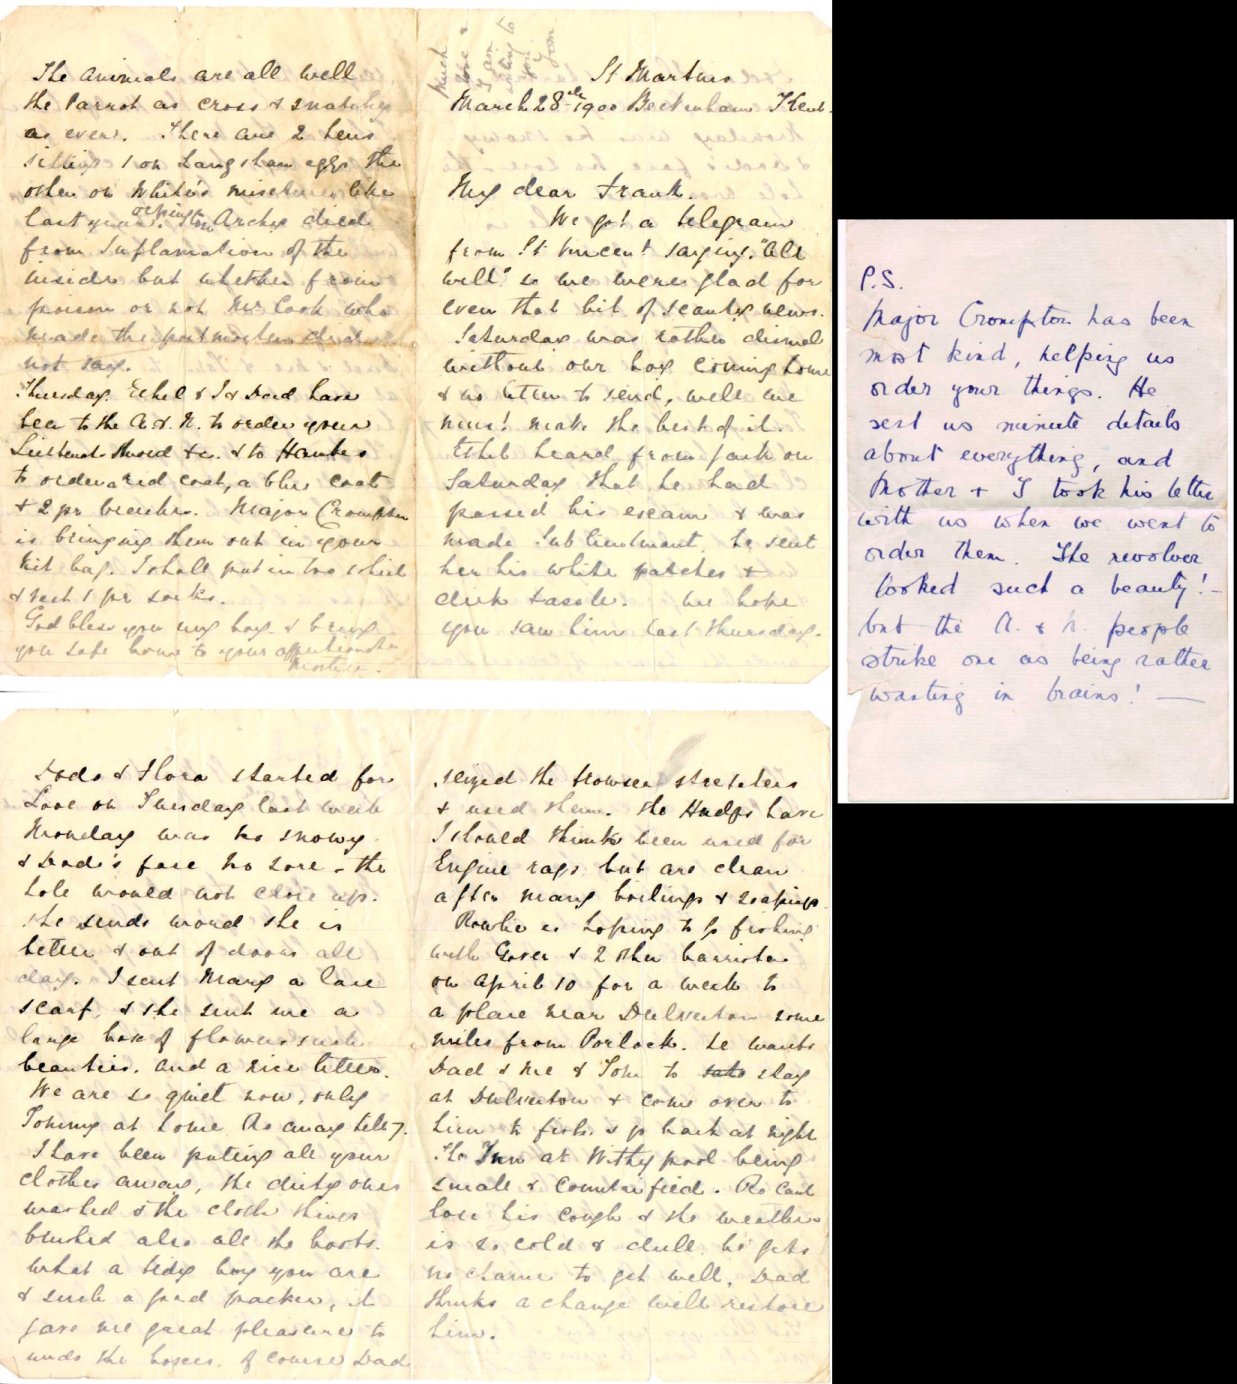 St Martins
March 28th 1900 Beckenham Kent.
My dear Frank.
We got a telegram
from St Vincent saying "All
well" so we were glad for
even that bit of scanty news.
Saturday was rather dismal
without our boy coming home
& no letter to send, well we
must make the best of it.
Ethel heard from Jack on
Saturday that he had
passed his exam & was
made Sub lieutenant, he sent
her his white patches &
dirk tassle. We hope
you saw him last Thursday.
Dods & Flora started for
Looe on Tuesday last week
Monday was so snowy
& Dods's face so sore - the
hole would not close up.
She sends word she is
better & out of doors all
day. I sent Mary a lace
scarf, & she sent me a
large box of flowers such
beauties. and a nice letter.
We are so quiet now, only
Tommy at home Ro away till 7.
I have been putting all your
clothes away, the dirty ones
washed & the cloth things
brushed also all the boots.
What a tidy boy you are
& such a good packer, it
gave me great pleasure to
undo the boxes. Of course Dad
seized the trowser stretchers
& used them. The Hudps have
I should think been used for
Engine rags but are clean
after many boilings & soapings.
Rowlie is hoping to go fishing
with Gover & 2 other barristers
on April 10 for a week to
a place near Dulverton some
miles from Porlock. he wants
Dad & me & Tom to stay
at Dulverton & come over to
him to fish. & go back at night
The Inn at Withypool being
small & countrified. Ro cant
lose his cough & the weather
is so cold & dull. he gets
no chance to get well, Dad
thinks a change will restore
him.
The animals are all well
the Parrot as cross & snatchy
as ever. There are 2 hens
sitting 1 on Langshan eggs the
other on White's mixture like
last year. Orpington Archy died
from Inflamation of the
inside but whether from
poison or not Mr Cook who
made the postmortem did
not say.
Thursday. Ethel & I & Dad have
been to the A & N. to order your
Lieutenants sword &c. & to Hawkes
to order a red coat, a blue coat
& 2 pr breeches. Major Crompton
is bringing them out in your
kit bag. I shall put in two shirts
& vest 1 pr socks.
God bless you my boy & bring
you safe home to your affectionate
Mother.
Much
love &
I am
writing to
you
P.S.
Major Crompton has been
most kind, helping us
order your things. He
sent us minute details
about everything, and
Mother & I took his letter
with us when we went to
order them. The revolver
looked such a beauty! -
but the A. & N. people
strike one as being rather
wanting in brains! —